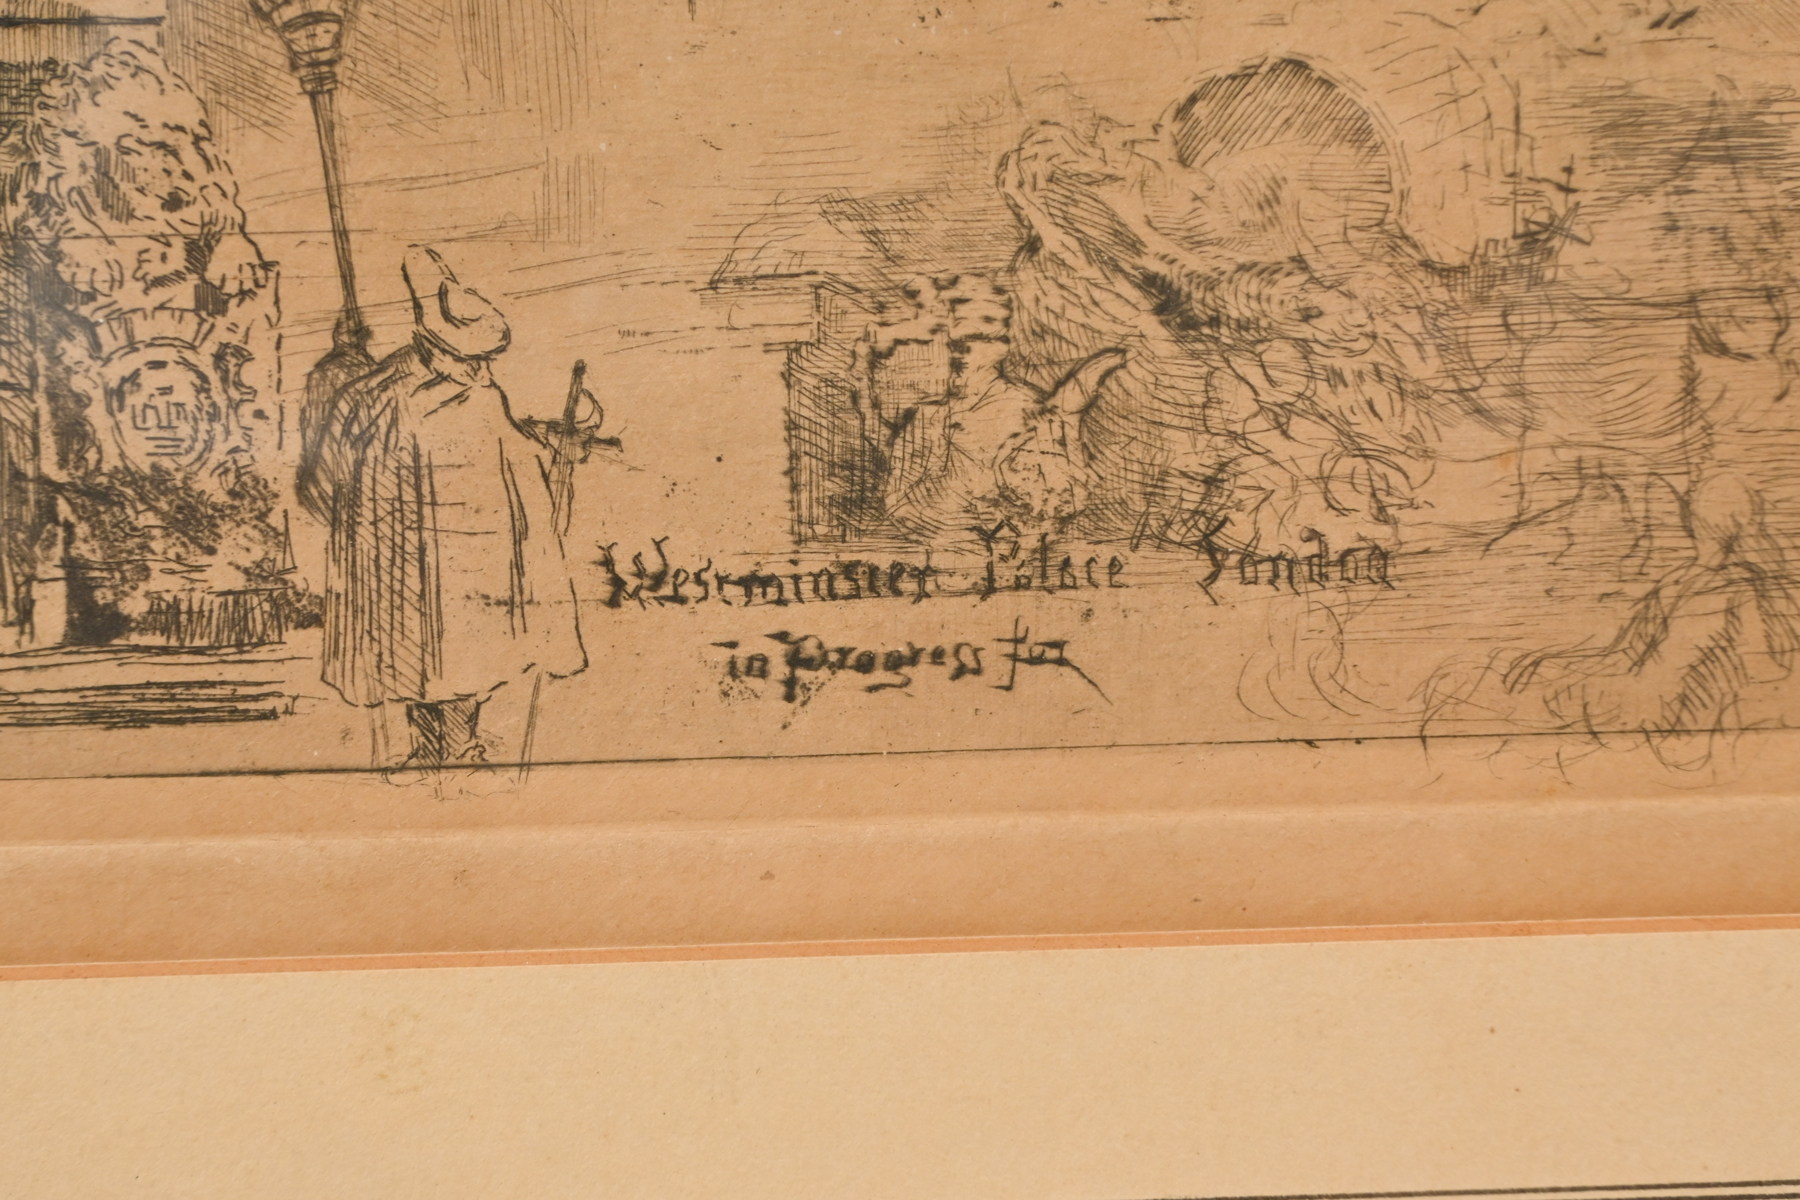 Westminster Palace London
in Progress for